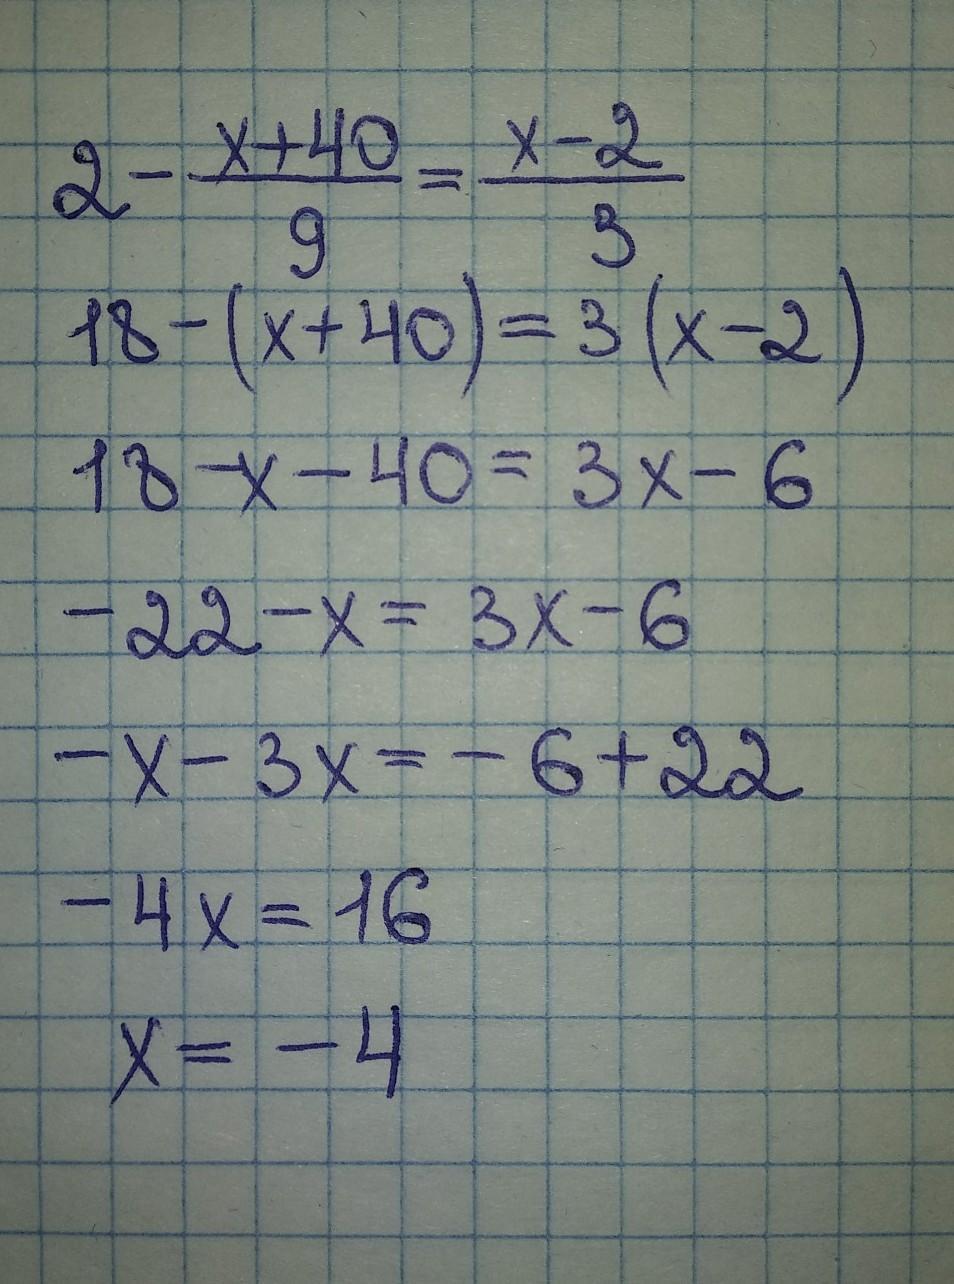 2 - (x+40)/9 = (x-2)/3
18-(x+40)=3(x-2)
18-x-40=3x-6
-22-x=3x-6
-x-3x=-6+22
-4x=16
x=-4